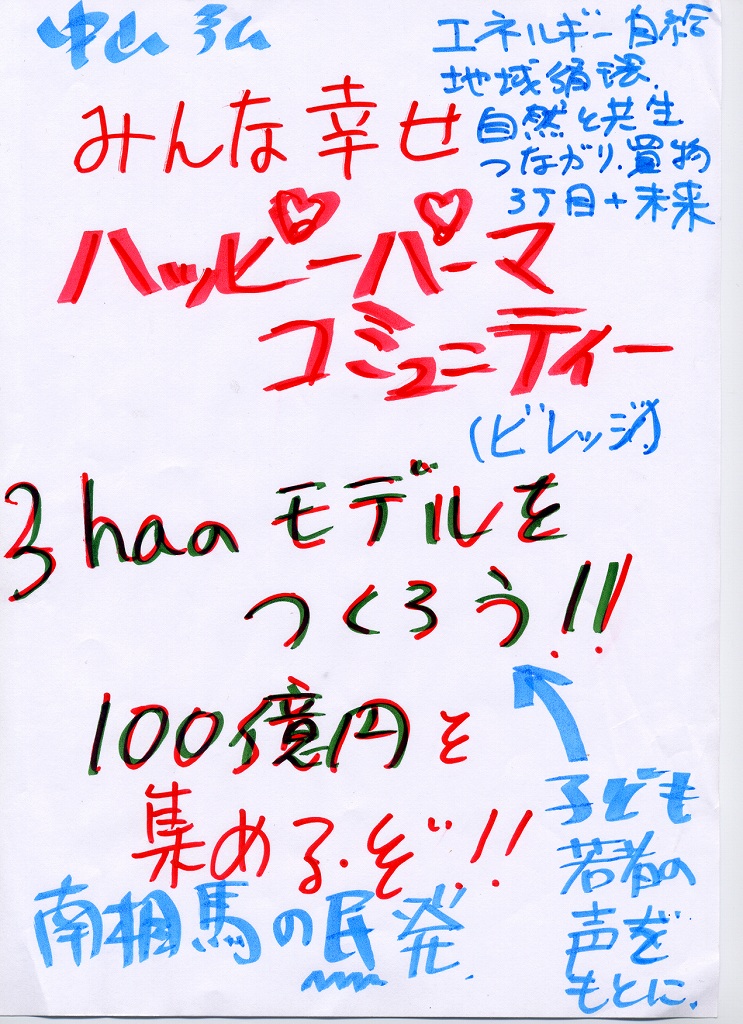 中山 弘
エネルギー自給
地域循環
自然と共生
つながり、買物
3丁目+未来
みんな幸せ
ハッピーパーマ
コミュニティー
(ビレッジ)
3haのモデルを
つくろう!!
100億円を
集めるぞ!!
子ども
若者の
声を
もとに
南相馬の民発